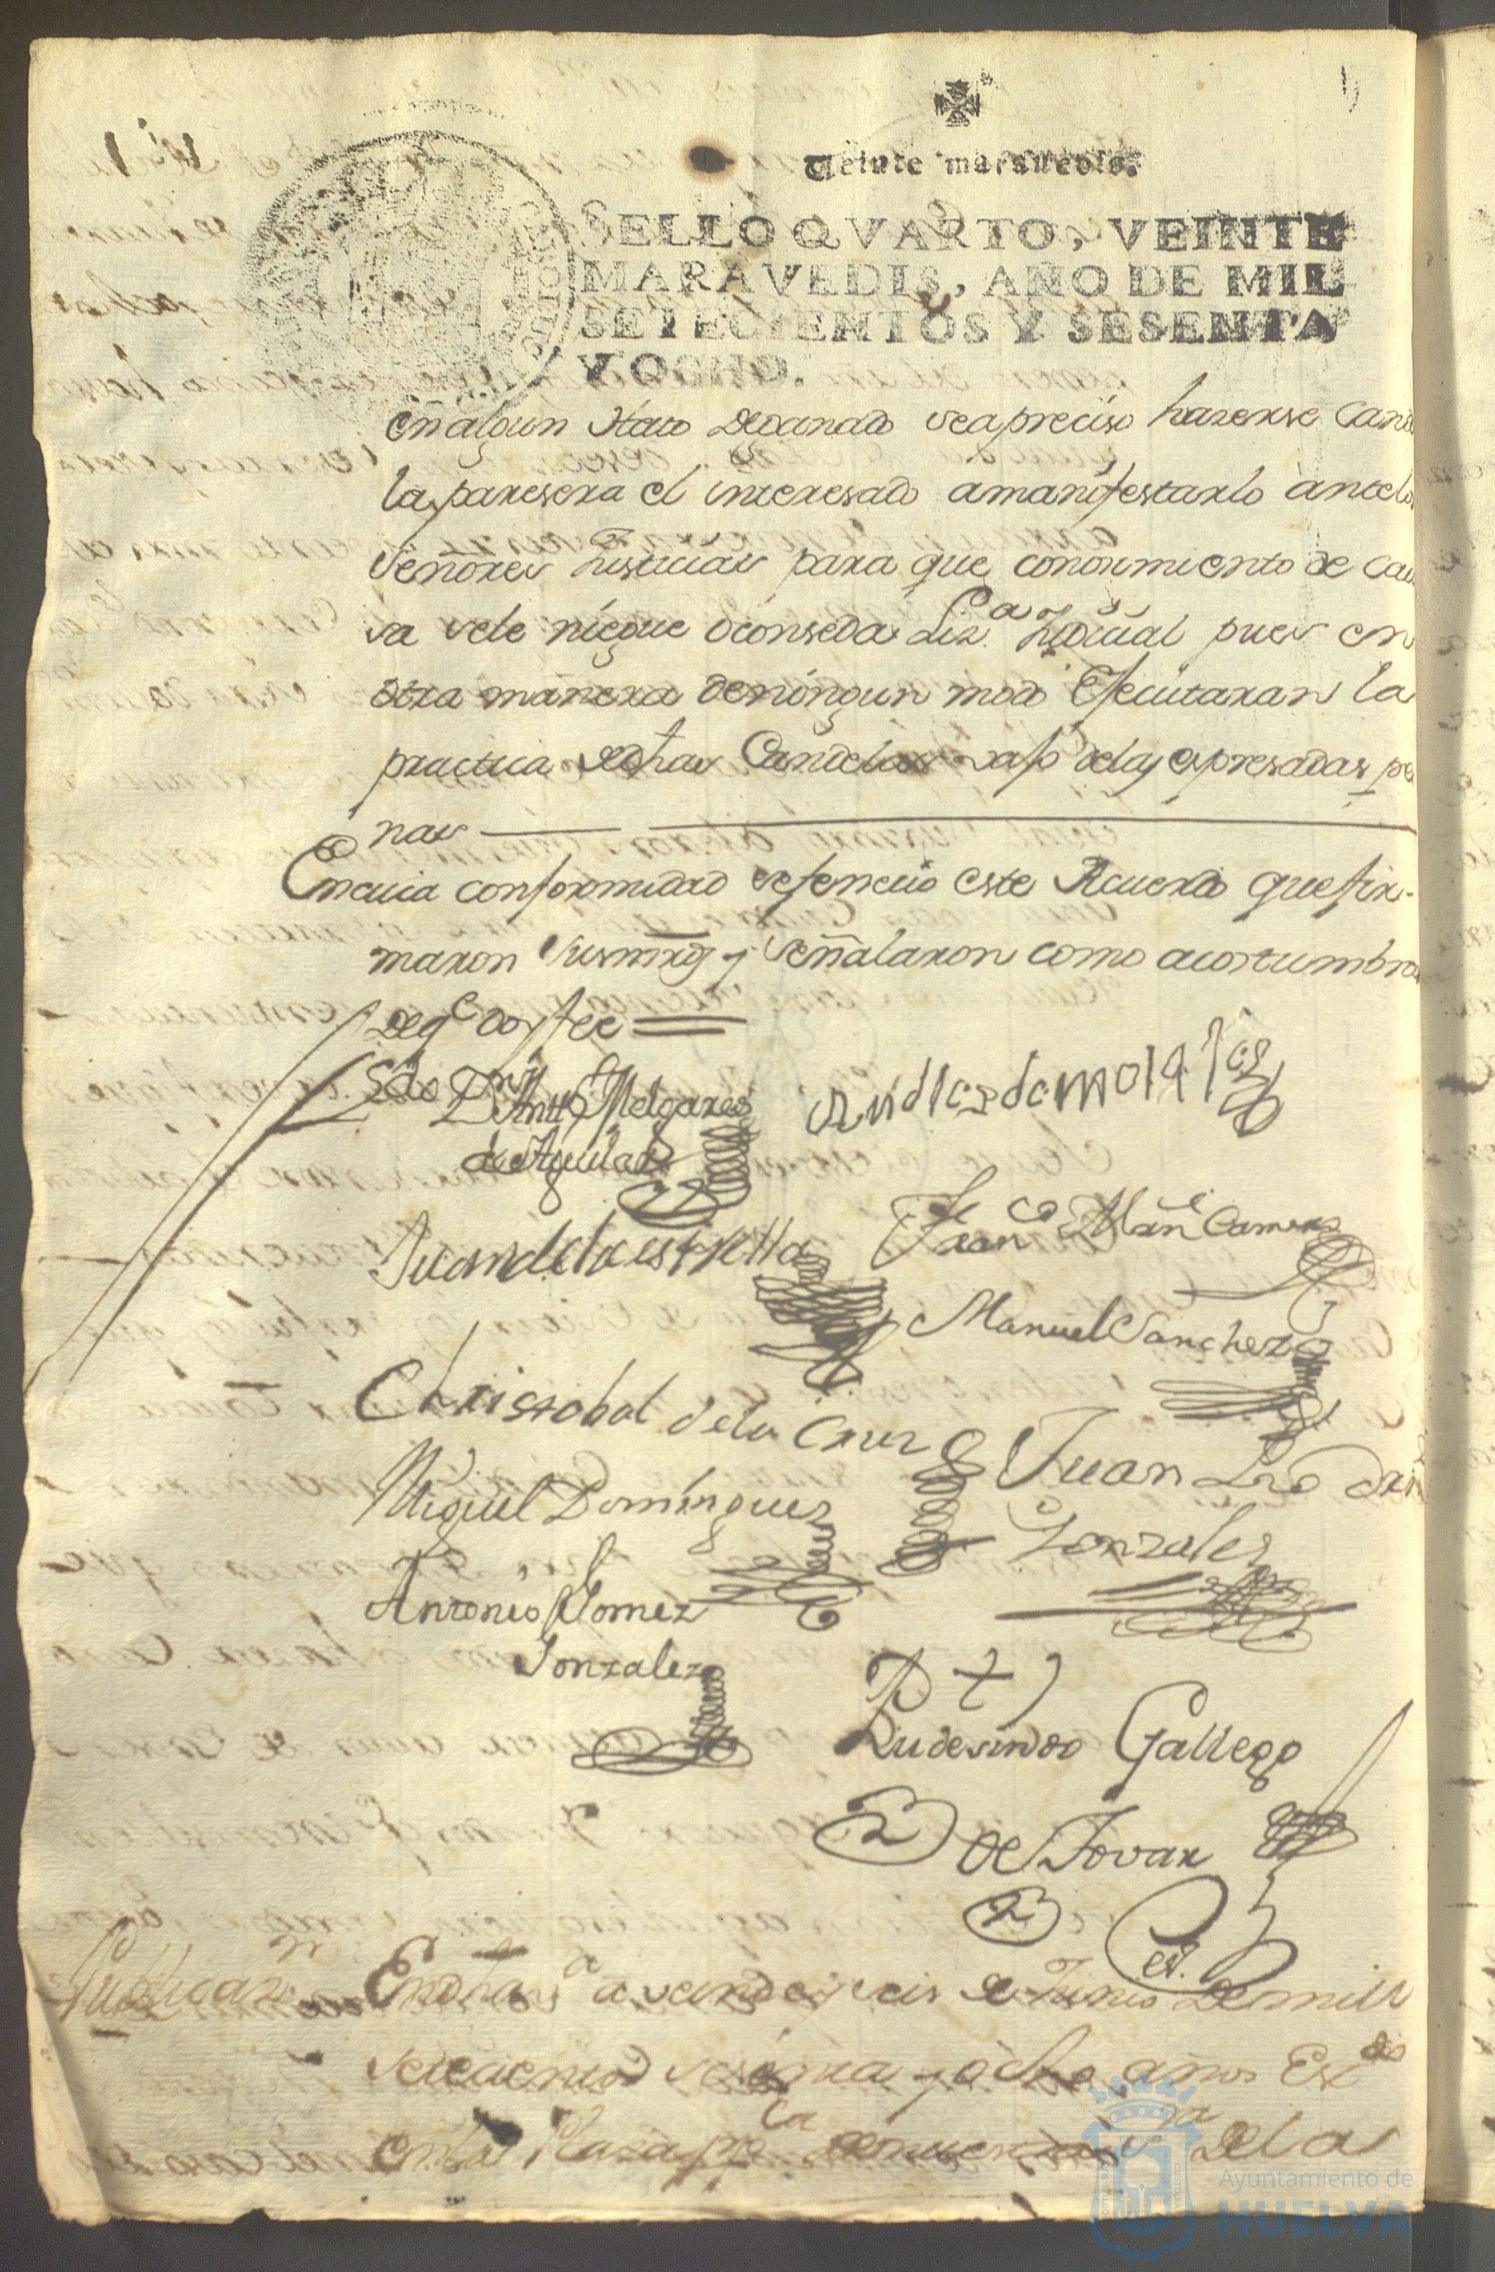 Veinte maravedis.
SELLO QVARTO, VEINTE
MARAVEDIS, AÑO DE MIL
SETECIENTOS Y SESENTA
Y OCHO.
en algun Hato de ganado sea preciso hazerse Cande
la, paresera el interesado a manifestarlo ante los
Señores Justicias para que conosimiento de cau
sa sele niegue o conseda Liz.ca Judicial pues en
otra manera de ningun modo Ejecutaran la
practica de dhas Candelas vajo de las espresadas pe
nas
En cuia conformidad se fenecio este Acuerdo que fir-
maron sus mrds y señalaron como acostumbran
de q.e doy fee
D.n Antt.o Melgarejo
de Aguilar
Juan de la estrella
Fran.co Man.l Camero
Manuel Sanchez
Christobal de la Cruz
Juan
Miguel Dominguez
Gonzales
Antonio Gomez
Gonzalez
Rudesindo Gallego
de Tovar
Publicaz.n
En dha v.a a veinte y seis de Junio de mill
setecientos sesenta y ocho años Es.do
en la Plaza pp.ca de la
Ayuntamiento de
HUELVA